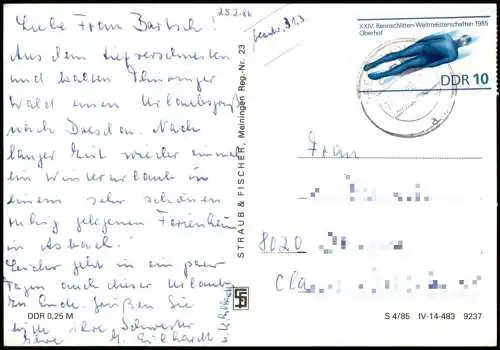 Liebe Frau Bartsch!
25.2.86
beantw. 9.3
Aus dem tiefverschneiten
und kalten Thüringer
Wald einen Urlaubsgruß
nach Dresden. Nach
langer Zeit wieder einmal
ein Winterurlaub in
einem sehr schönen
ruhig gelegenen Ferienheim
in Asbach.
Leider geht in ein paar
Tagen auch dieser Urlaub
zu Ende. Grüßen Sie
bitte ihre Schwester
Ihre G. Eckhardt
STRAUB & FISCHER, Meiningen Reg.-Nr. 23
XXIV. Rennschlitten-Weltmeisterschaften 1985
Oberhof
DDR 10
Frau
8020
DDR 0,25 M
S 4/85 IV-14-483 9237